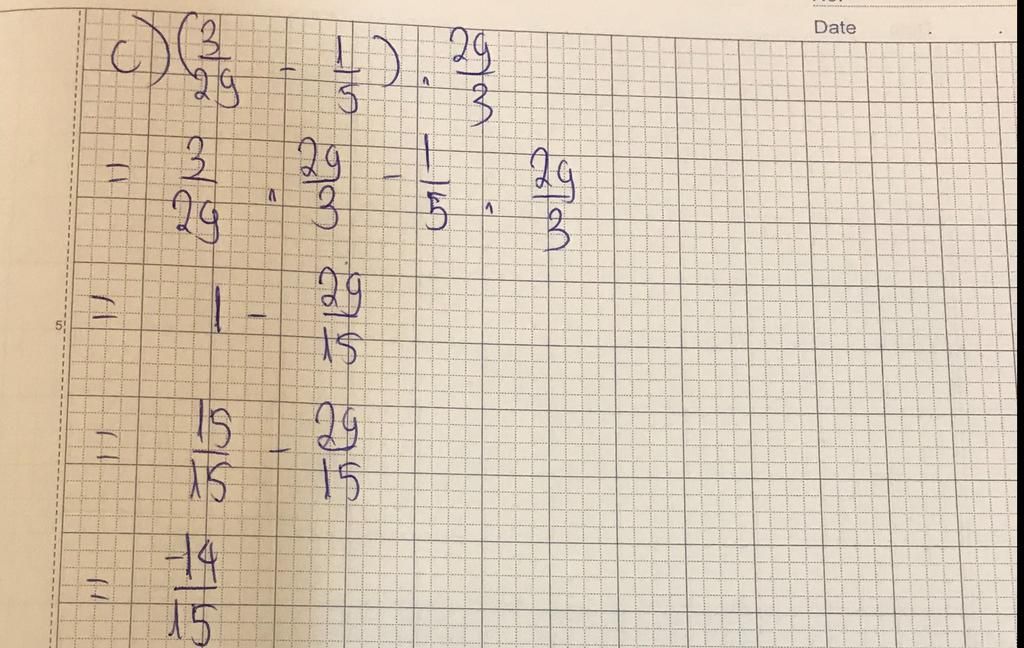 Date . .
c) (3/29 - 1/5) . 29/3
= 3/29 . 29/3 - 1/5 . 29/3
= 1 - 29/15
5
= 15/15 - 29/15
= -14/15